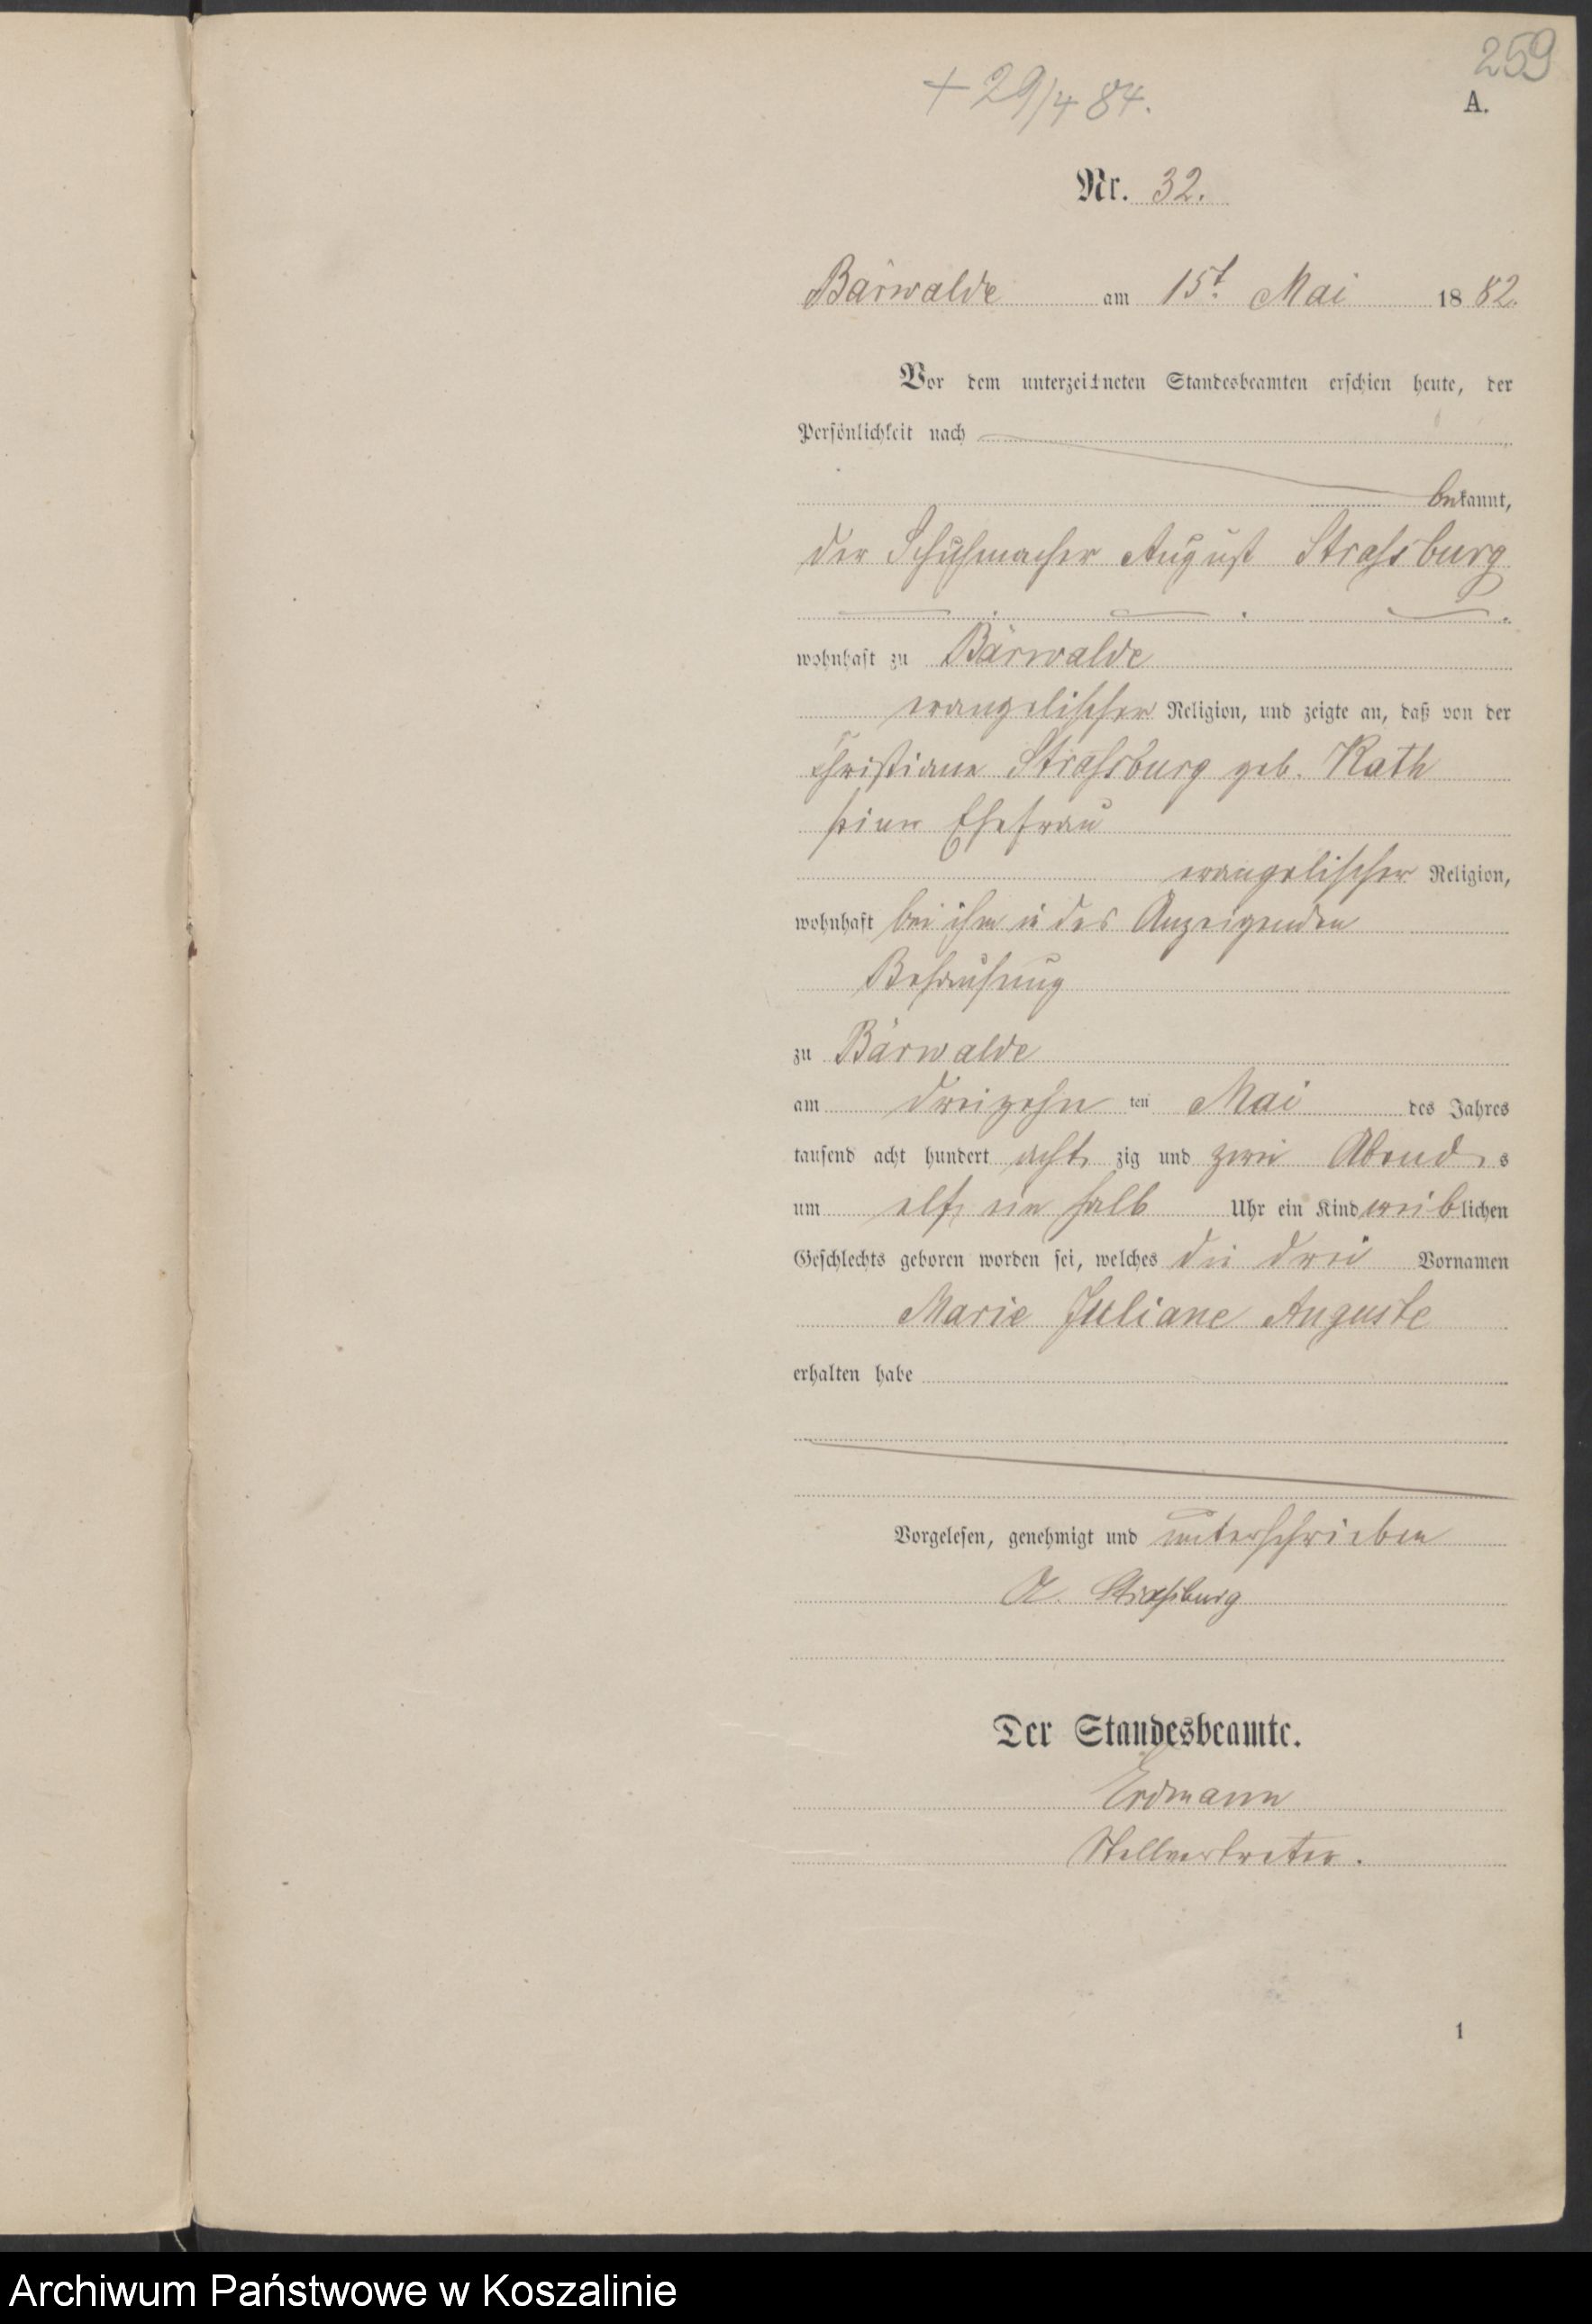 259
+ 29/4 84.
A.
Nr. 32.
Bärwalde am 15t. Mai 1882.
Vor dem unterzeichneten Standesbeamten erschien heute, der
Persönlichkeit nach
bekannt,
der Schuhmacher August Strassburg
wohnhaft zu Bärwalde
evangelischer Religion, und zeigte an, daß von der
Christiane Strassburg geb. Rath
seiner Ehefrau
evangelischer Religion,
wohnhaft bei ihm in des Anzeigenden
Behausung
zu Bärwalde
am dreizehn ten Mai des Jahres
tausend acht hundert acht zig und zwei Abend s
um elf ein halb Uhr ein Kind weiblichen
Geschlechts geboren worden sei, welches die drei Vornamen
Marie Juliane Auguste
erhalten habe
Vorgelesen, genehmigt und unterschrieben
A. Straßburg
Der Standesbeamte.
Erdmann
Stellvertreter.
1
Archiwum Państwowe w Koszalinie